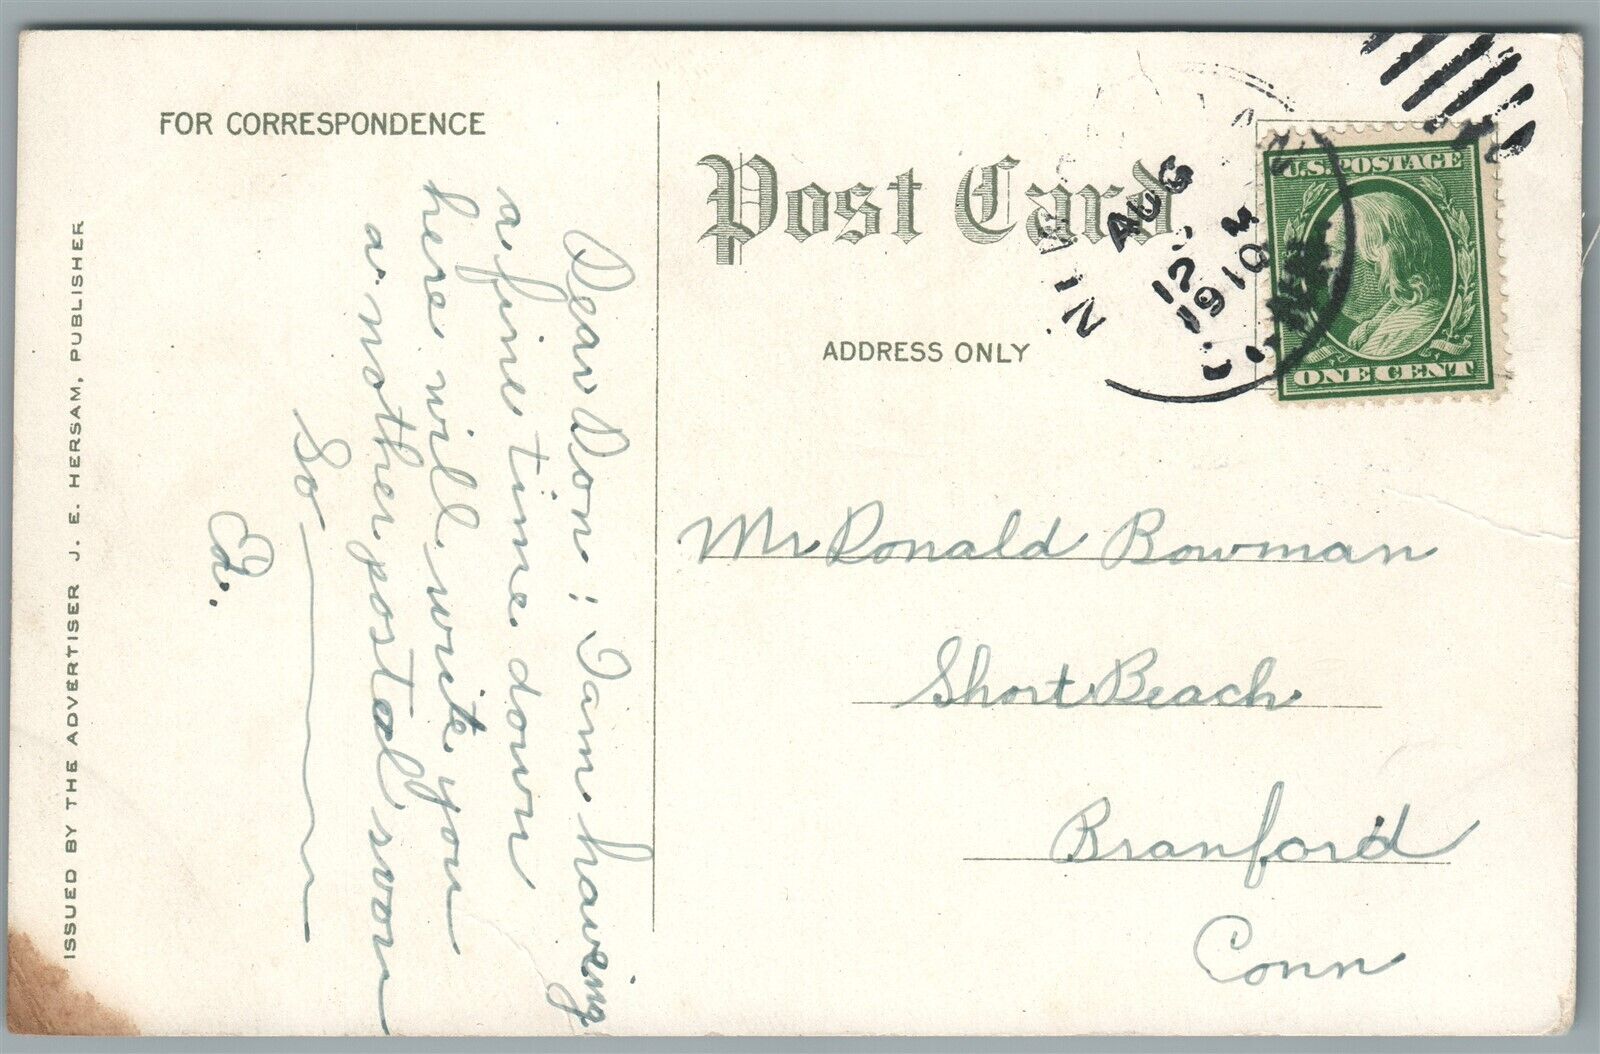 FOR CORRESPONDENCE
Post Card
ADDRESS ONLY
ISSUED BY THE ADVERTISER J. E. HERSAM, PUBLISHER
Dear Don: I am having
a fine time down
here will write you
another postal soon
So
Ed.
AUG
12
1910
U.S. POSTAGE
ONE CENT
Mr Ronald Bowman
Short Beach
Branford
Conn